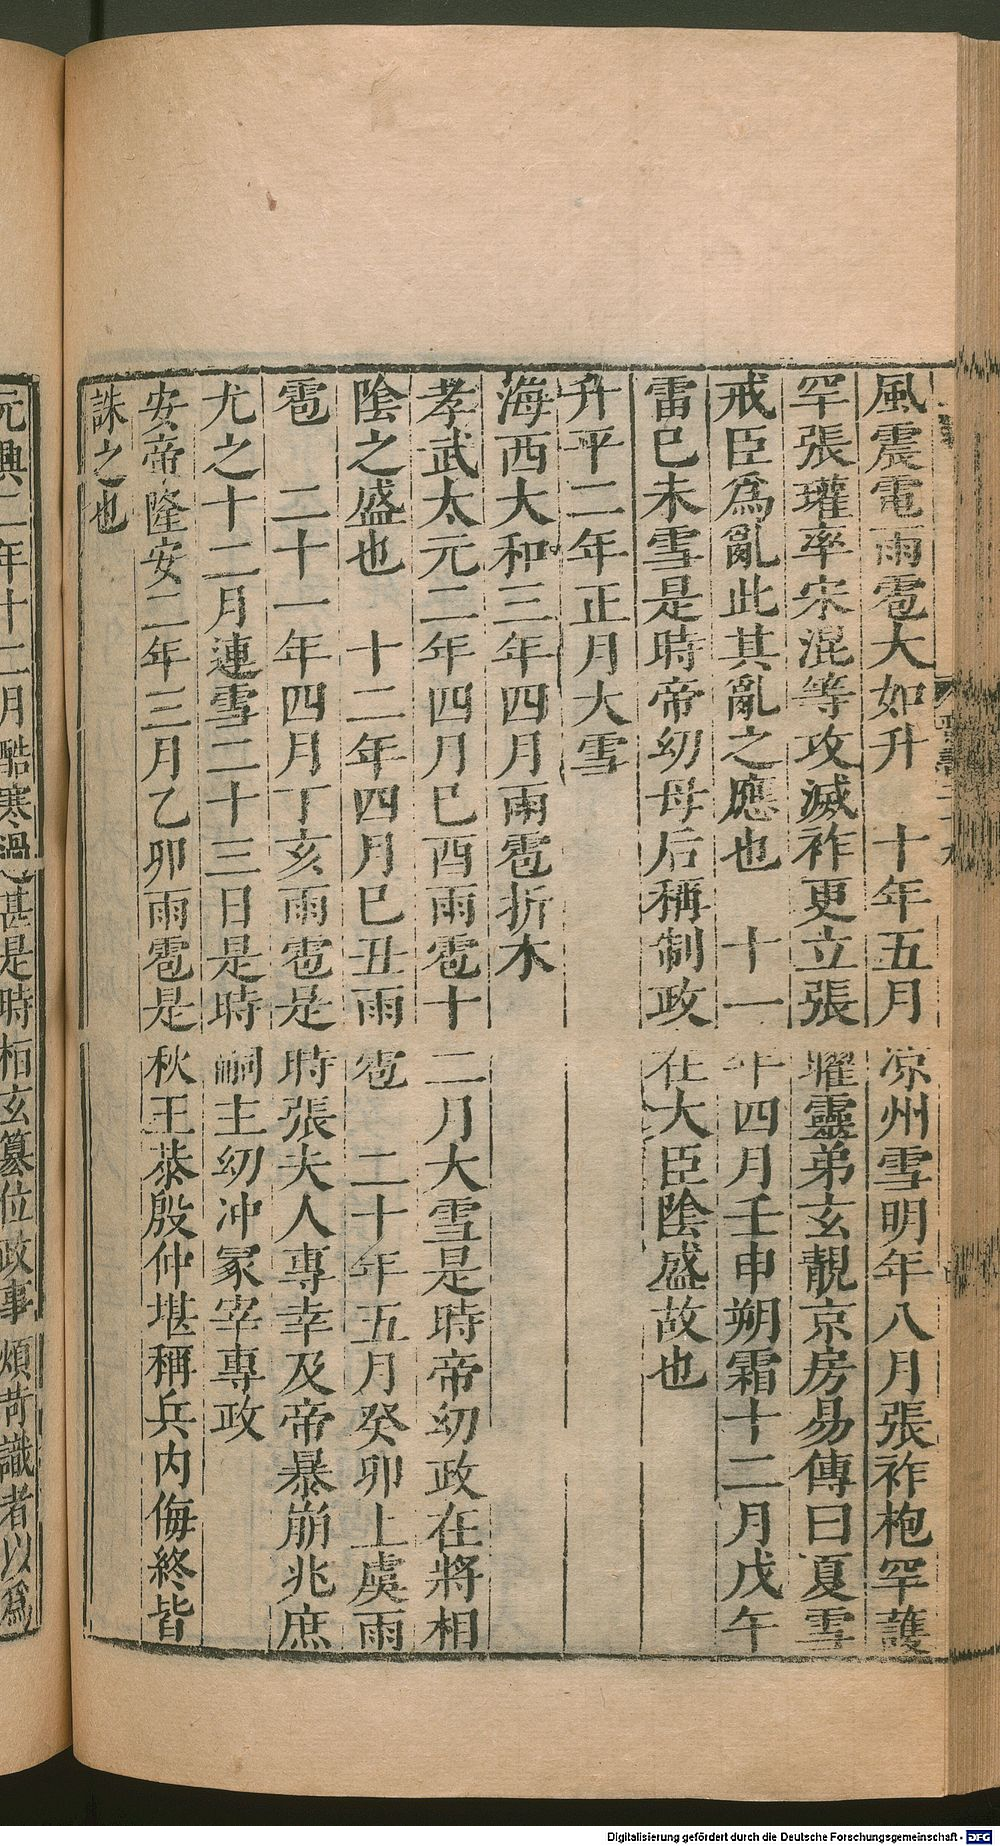 風震電雨雹大如升　十年五月涼州雪明年八月張祚枹罕護
罕張瓘率宋混等攻滅祚更立張曜靈弟玄靚京房易傳曰夏雪
戒臣爲亂此其亂之應也　十一年四月壬申朔霜十二月戊午
雷巳未雪是時帝幼母后稱制政在大臣陰盛故也
升平二年正月大雪
海西大和三年四月雨雹折木
孝武太元二年四月巳酉雨雹十二月大雪是時帝幼政在將相
陰之盛也　十二年四月巳丑雨雹　二十年五月癸卯上虞雨
雹　二十一年四月丁亥雨雹是時張夫人專幸及帝暴崩兆庶
尤之十二月連雪二十三日是時嗣主幼冲冢宰專政
安帝隆安二年三月乙卯雨雹是秋王恭殷仲堪稱兵内侮終皆
誅之也
元興二年十二月酷寒過甚是時栢玄篡位政事煩苛識者以爲
Digitalisierung gefördert durch die Deutsche Forschungsgemeinschaft - DFG